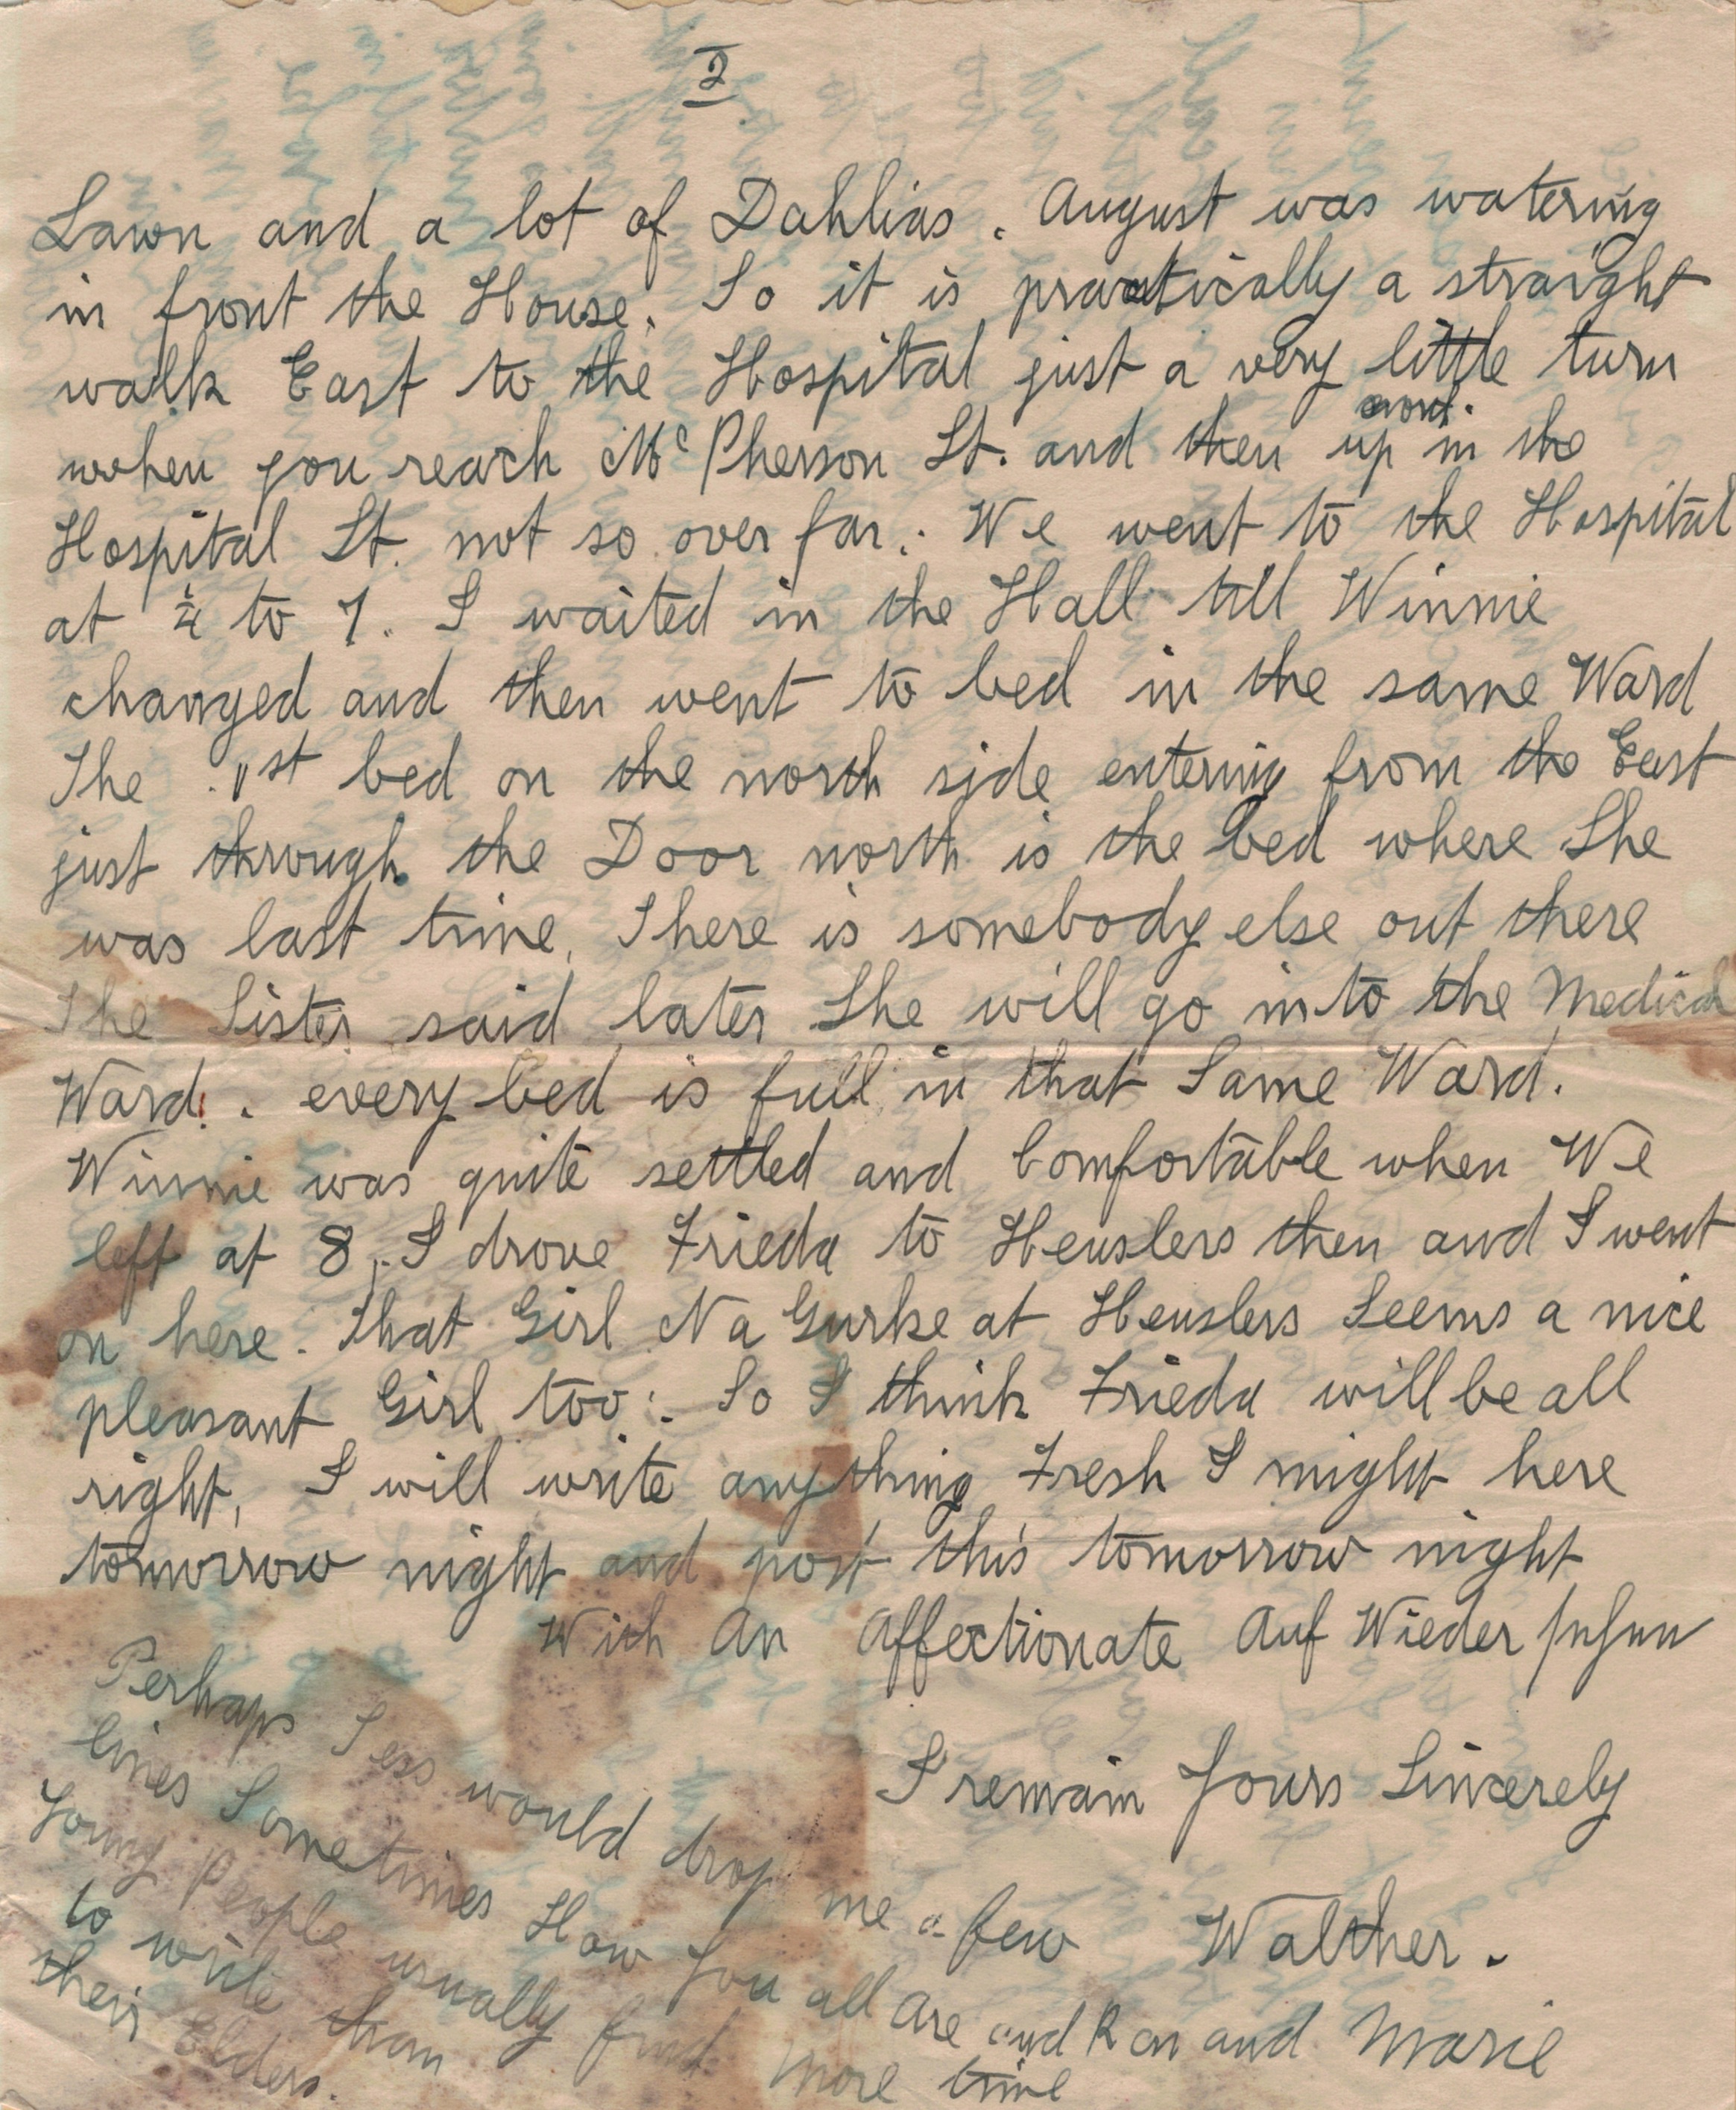 2
Lawn and a lot of Dahlias. August was watering
in front the House. So it is practically a straight
walk East to the Hospital just a very little turn
when you reach McPherson St. and then up in the
Hospital St. not so over far. We went to the Hospital
at ¼ to 7. I waited in the Hall till Winnie
changed and then went to bed in the same Ward
The 1st bed on the north side entering from the East
just through the Door north is the bed where She
was last time. There is somebody else out there
The Sister said later She will go into the Medical
Ward. every bed is full in that Same Ward.
Winnie was quite settled and Comfortable when We
left at 8. I drove Frieda to Heuslers then and I went
on here. That Girl Na Gurke at Heuslers Seems a nice
pleasant Girl too. So I think Frieda will be all
right, I will write anything Fresh I might here
tomorrow night and post this tomorrow night
With An Affectionate Auf Wieder sehen
I remain Yours Sincerely
Walther.
Perhaps Tess would drop me a few
lines Sometimes How You all are and Ron and Marie
Young People usually find more time
to write than
their Elders.